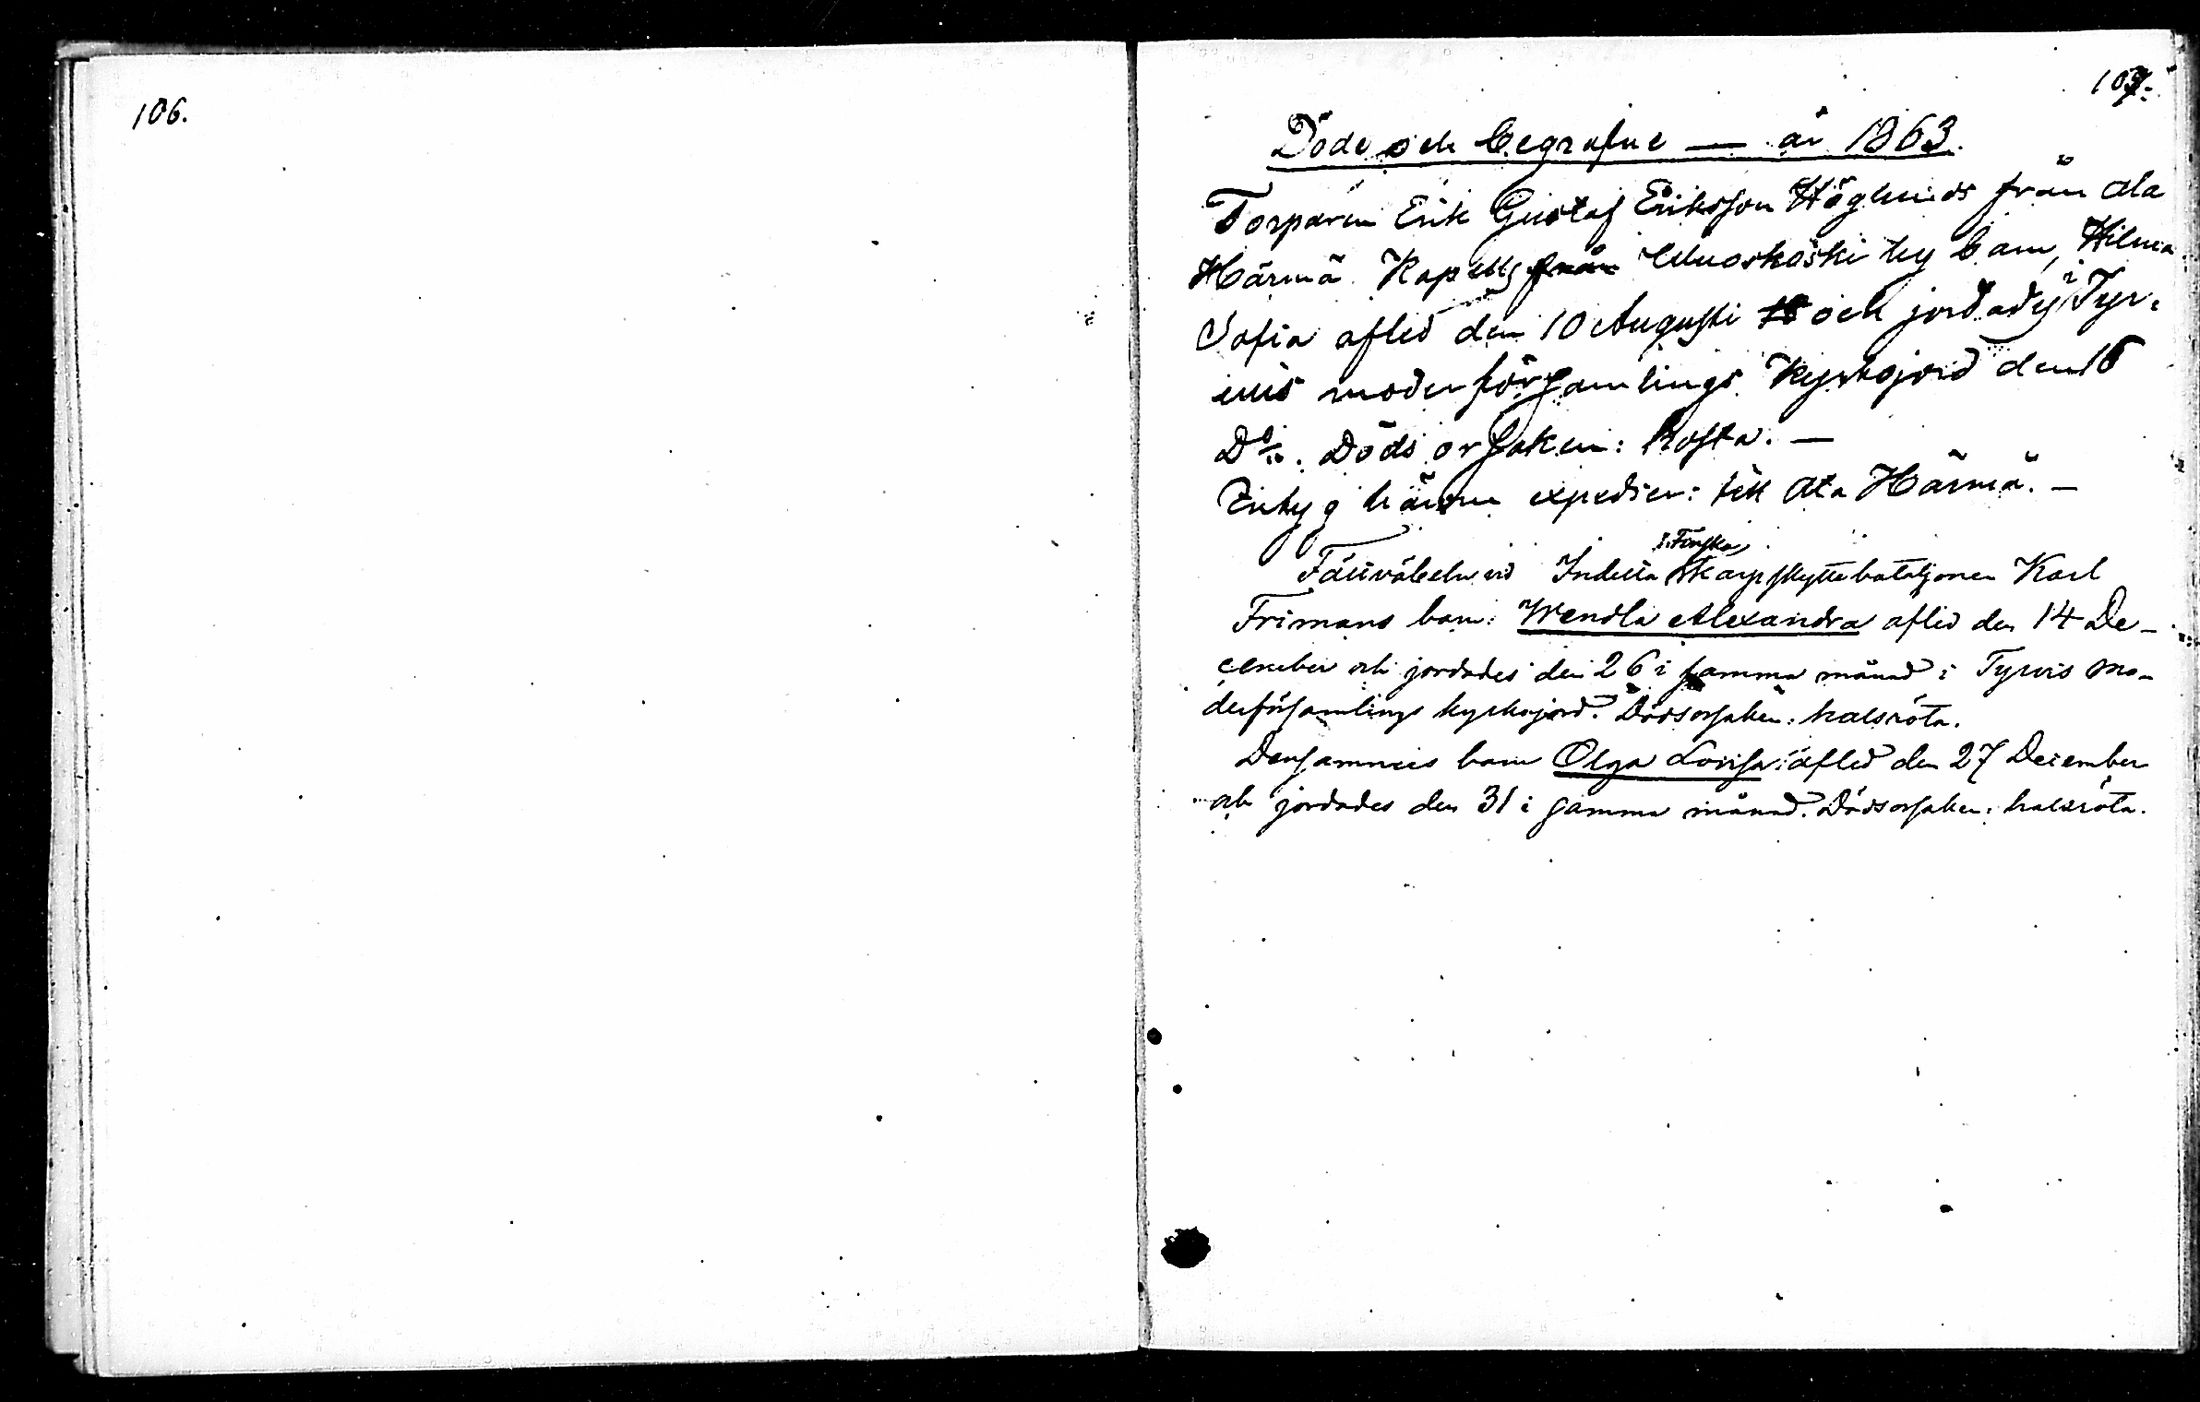 106.
107.
Döde och begrafne — år 1863.
Torparen Erik Gustaf Eriksson Höglunds från Ala
Härmä Kapells från Woskoski by barn, Hilma
Sofia afled den 10 Augusti och jordades i Tyr-
vis moderförsamlings Kyrkojord den 16
D:o. Döds orsaken: Hosta. —
Intyg härom expedier: till Ala Härmä. —
Fältväbeln vid Indelta Finska skarpskyttebataljonen Karl
Frimans barn: Wendla Alexandra afled den 14 De-
cember och jordades den 26 i samma månad i Tyrvis mo-
derförsamlings kyrkojord. Dödsorsaken: halsröta.
Densammes barn Olga Lovisa: afled den 27 December
och jordades den 31 i samma månad. Dödsorsaken: halsröta.